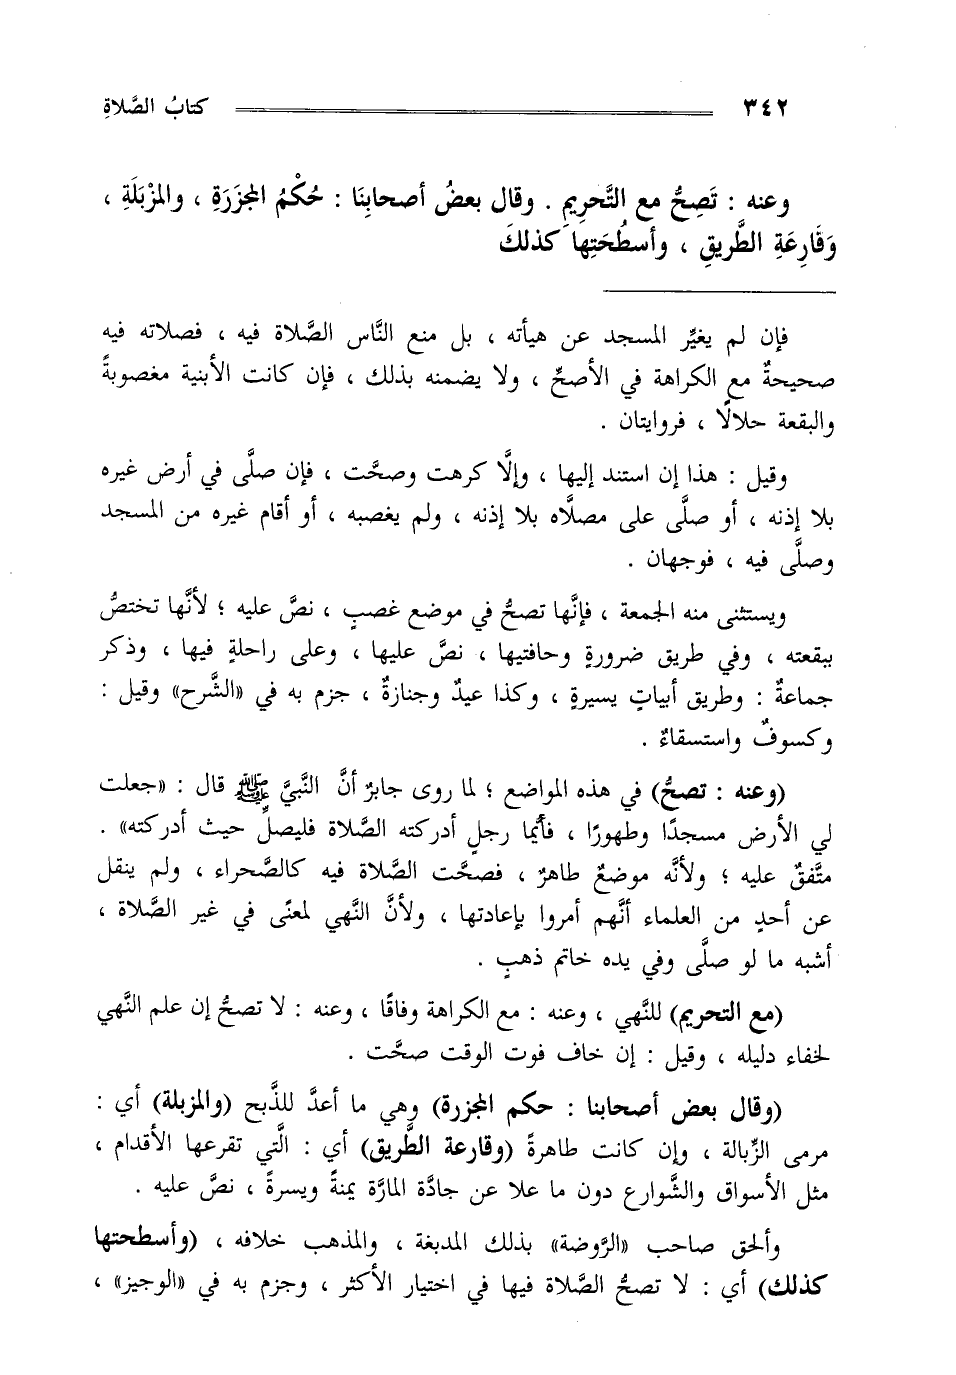 ٣٤٢ كتابُ الصَّلاةِ
وعنه : تَصِحُّ مع التَّحرِيمِ . وقال بعضُ أصحابِنَا : حُكْمُ المجزَرَةِ ، والمزْبَلَةِ ،
وَقَارِعَةِ الطَّريقِ ، وأسطُحَتِها كذلكَ
فإن لم يغيِّر المسجد عن هيأته ، بل منع النَّاس الصَّلاة فيه ، فصلاته فيه
صحيحةٌ مع الكراهة في الأصحِّ ، ولا يضمنه بذلك ، فإن كانت الأبنية مغصوبةً
والبقعة حلالًا ، فروايتان .
وقيل : هذا إن استند إليها ، وإلَّا كرهت وصحَّت ، فإن صلَّى في أرض غيره
بلا إذنه ، أو صلَّى على مصلَّاه بلا إذنه ، ولم يغصبه ، أو أقام غيره من المسجد
وصلَّى فيه ، فوجهان .
ويستثنى منه الجمعة ، فإنَّها تصحُّ في موضع غصبٍ ، نصَّ عليه ؛ لأنَّها تختصُّ
ببقعته ، وفي طريق ضرورةٍ وحافتيها ، نصَّ عليها ، وعلى راحلةٍ فيها ، وذكر
جماعةٌ : وطريق أبياتٍ يسيرةٍ ، وكذا عيدٌ وجنازةٌ ، جزم به في «الشَّرح» وقيل :
وكسوفٌ واستسقاءٌ .
(وعنه : تصحُّ) في هذه المواضع ؛ لما روى جابرٌ أنَّ النَّبيَّ ﷺ قال : «جعلت
لي الأرض مسجدًا وطهورًا ، فأيُّما رجلٍ أدركته الصَّلاة فليصلِّ حيث أدركته» .
متَّفقٌ عليه ؛ ولأنَّه موضعٌ طاهرٌ ، فصحَّت الصَّلاة فيه كالصَّحراء ، ولم ينقل
عن أحدٍ من العلماء أنَّهم أمروا بإعادتها ، ولأنَّ النَّهي لمعنًى في غير الصَّلاة ،
أشبه ما لو صلَّى وفي يده خاتم ذهبٍ .
(مع التحريم) للنَّهي ، وعنه : مع الكراهة وفاقًا ، وعنه : لا تصحُّ إن علم النَّهي
لخفاء دليله ، وقيل : إن خاف فوت الوقت صحَّت .
(وقال بعض أصحابنا : حكم المجزرة) وهي ما أعدَّ للذَّبح (والمزبلة) أي :
مرمى الزِّبالة ، وإن كانت طاهرةً (وقارعة الطَّريق) أي : الَّتي تقرعها الأقدام ،
مثل الأسواق والشَّوارع دون ما علا عن جادَّة المارَّة يمنةً ويسرةً ، نصَّ عليه .
وألحق صاحب «الرَّوضة» بذلك المدبغة ، والمذهب خلافه ، (وأسطحتها
كذلك) أي : لا تصحُّ الصَّلاة فيها في اختيار الأكثر ، وجزم به في «الوجيز» ،